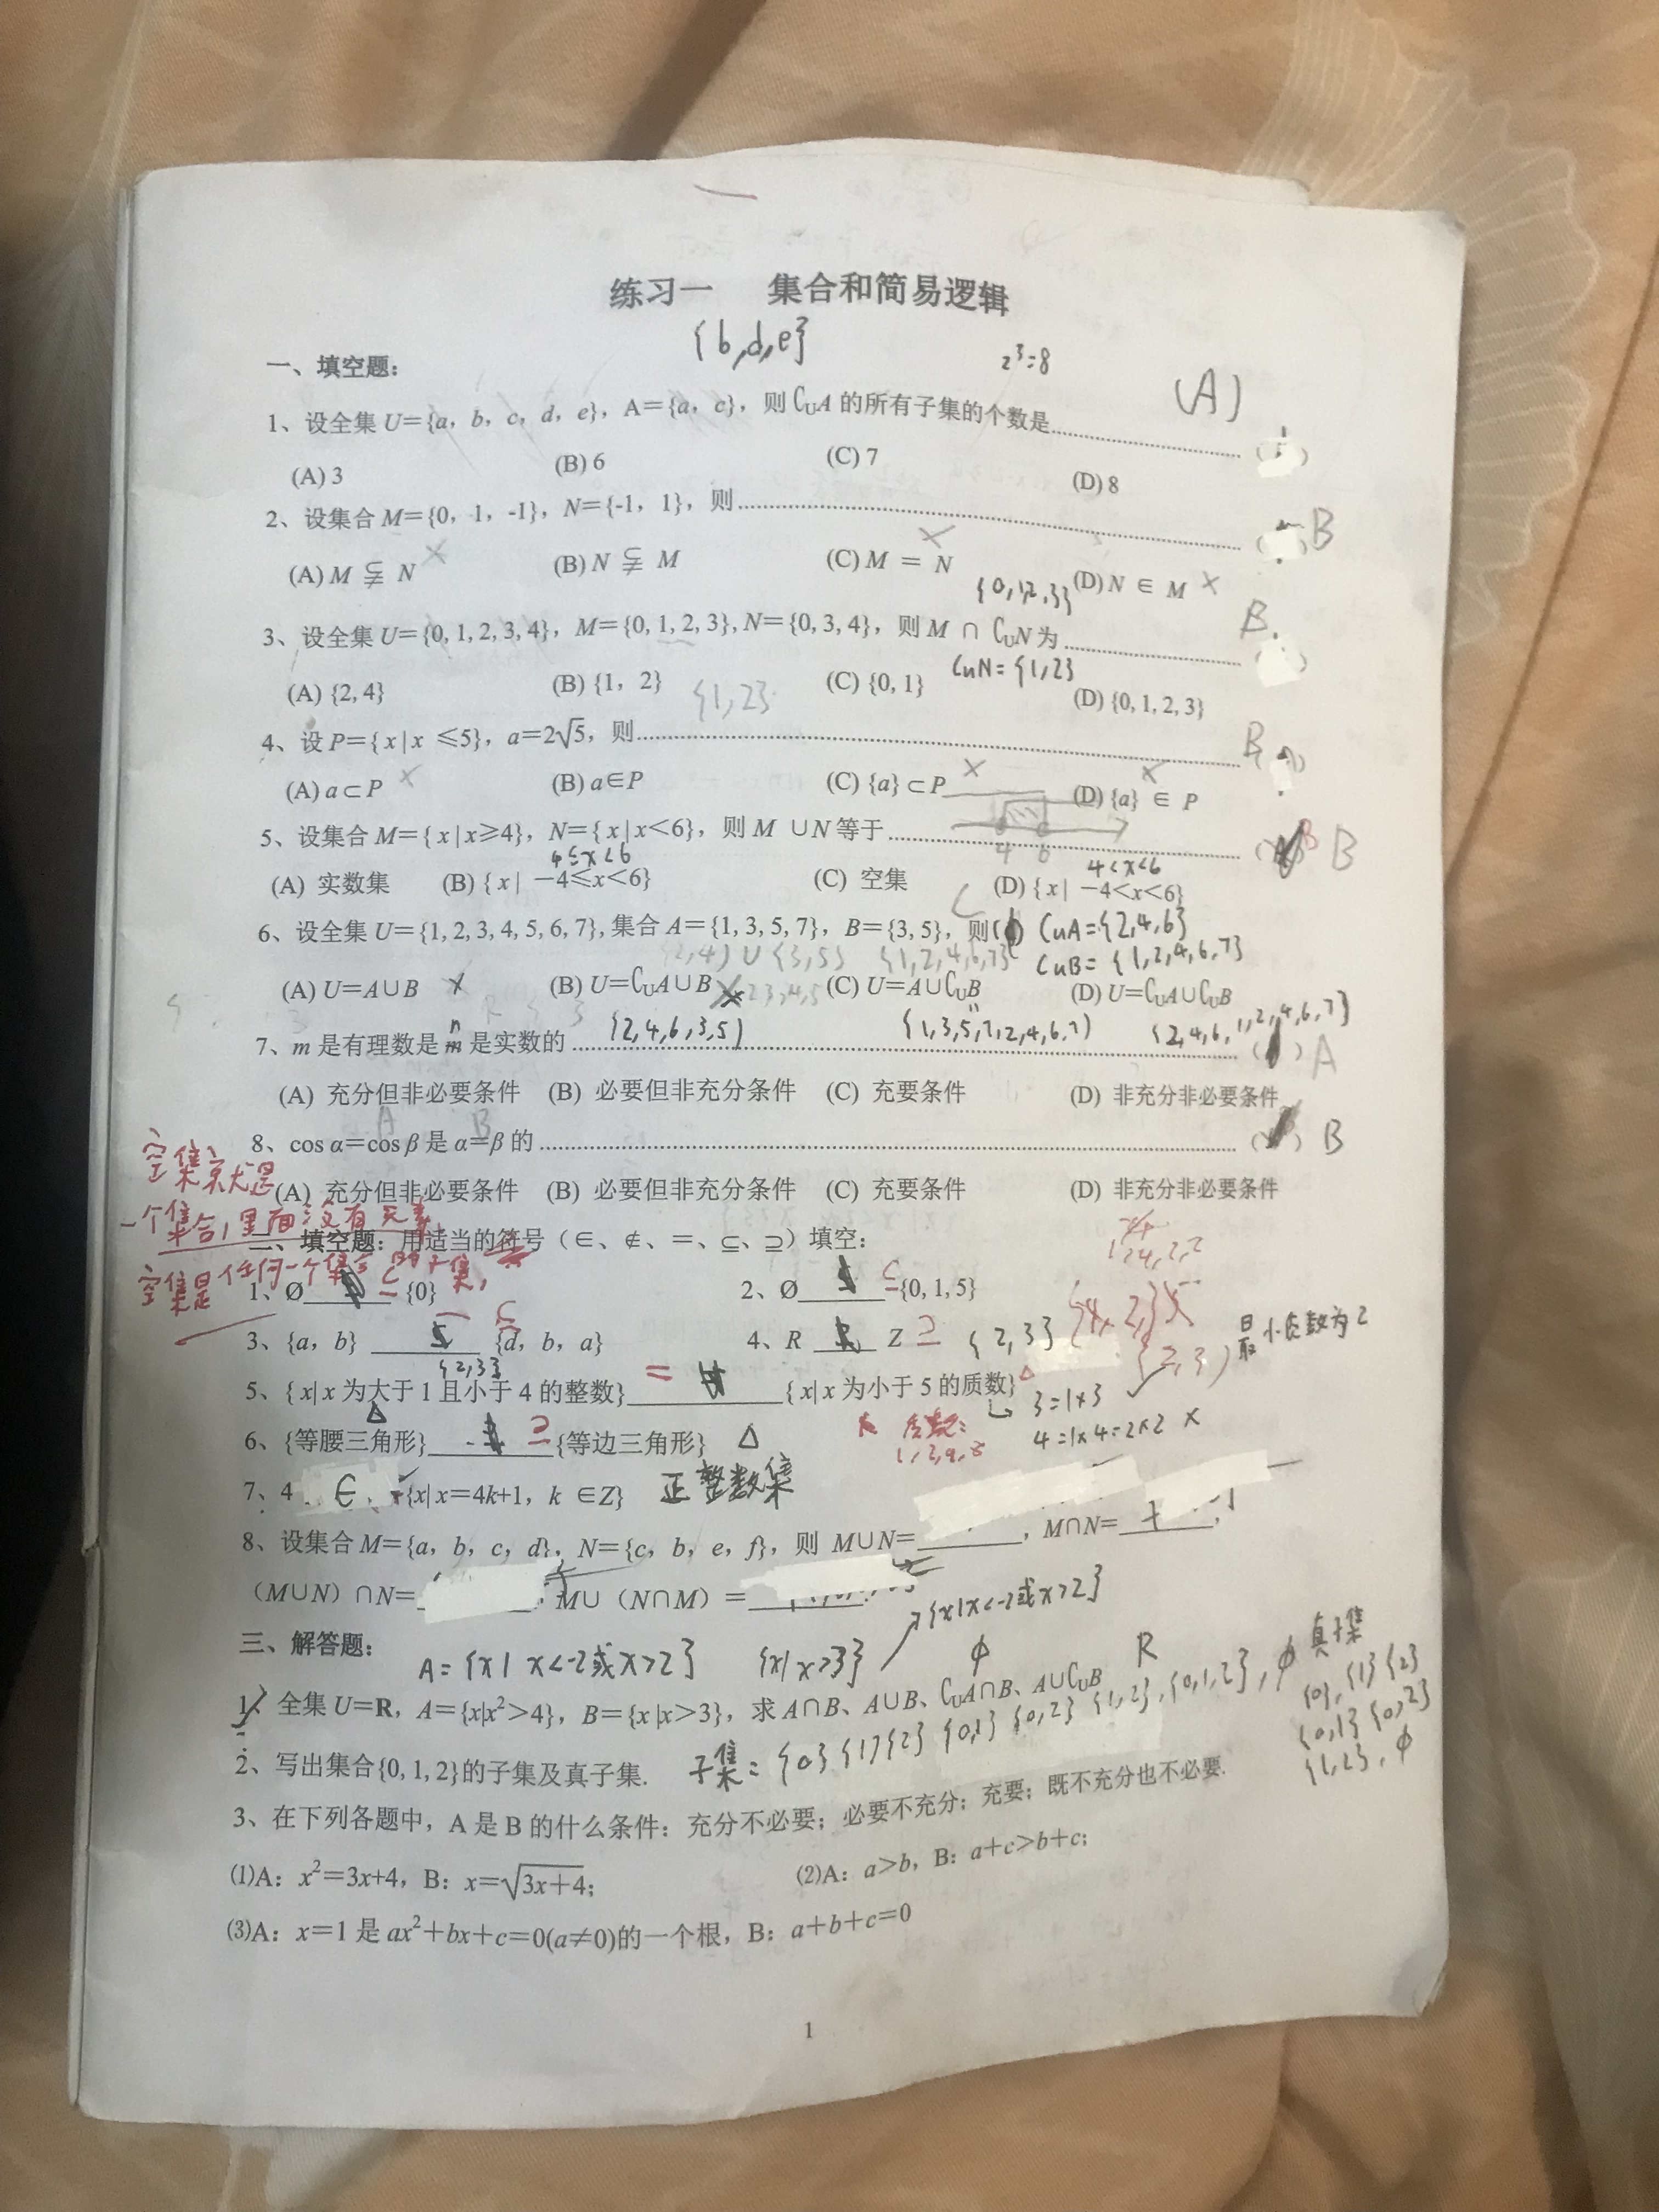 练习一 集合和简易逻辑
{b,d,e}
2³=8
一、填空题：
(A)
1、设全集 U={a，b，c，d，e}，A={a，c}，则∁UA 的所有子集的个数是
(A) 3 (B) 6 (C) 7 (D) 8
2、设集合 M={0，1，-1}，N={-1，1}，则 B
(A) M ⫋ N × (B) N ⫋ M (C) M = N × (D) N ∈ M ×
{0,1,2,3}
3、设全集 U={0, 1, 2, 3, 4}，M={0, 1, 2, 3}, N={0, 3, 4}，则 M ∩ ∁UN 为 B.
CuN={1,2}
(A) {2, 4} (B) {1，2} {1,2} (C) {0, 1} (D) {0, 1, 2, 3}
4、设 P={x|x ≤5}，a=2√5，则 B
(A) a⊂P × (B) a∈P (C) {a}⊂P × (D) {a} ∈ P ×
4 6
5、设集合 M={x|x≥4}，N={x|x<6}，则 M ∪N 等于 B B
4≤x<6 4<x<6
(A) 实数集 (B) {x| －4≤x<6} (C) 空集 (D) {x| －4<x<6}
C
6、设全集 U={1, 2, 3, 4, 5, 6, 7}, 集合 A={1, 3, 5, 7}，B={3, 5}，则( ) CuA={2,4,6}
{2,4}∪{3,5} {1,2,4,6,7} CuB={1,2,4,6,7}
(A) U=A∪B × (B) U=∁UA∪B × (C) U=A∪∁UB (D) U=∁UA∪∁UB
{2,4,6,3,5} {1,3,5,7,2,4,6,7} {2,4,6,1,2,4,6,7}
7、m 是有理数是 m 是实数的 ( ) A
n
(A) 充分但非必要条件 (B) 必要但非充分条件 (C) 充要条件 (D) 非充分非必要条件
A B
8、cos α=cos β 是 α=β 的 ( ) B
(A) 充分但非必要条件 (B) 必要但非充分条件 (C) 充要条件 (D) 非充分非必要条件
空集就是
一个集合,里面没有元素
空集是任何一个集合的子集,
二、填空题：用适当的符号（∈、∉、=、⊆、⊇）填空：
1、Ø ⊆ {0} 2、Ø ⊆ {0, 1, 5}
3、{a，b} ⊆ {d，b，a} 4、R ⊇ Z {2,3} {4,2} ×
{2,3} {2,3} 最小质数为2
5、{x|x 为大于 1 且小于 4 的整数} = {x|x 为小于 5 的质数}
3=1×3 ✓
4=1×4=2×2 ×
6、{等腰三角形} ⊇ {等边三角形} △
质数:
7、4 ∈ {x|x=4k+1，k ∈Z} 正整数集
8、设集合 M={a，b，c，d}，N={c，b，e，f}，则 M∪N= ，M∩N= ，
（M∪N）∩N= ，M∪（N∩M）=
三、解答题：
A={x| x<-2或x>2} {x|x>3} {x|x<-2或x>2} φ R
1、全集 U=R，A={x|x²>4}，B={x|x>3}，求 A∩B、A∪B、∁UA∩B、A∪∁UB
2、写出集合{0, 1, 2}的子集及真子集.
子集={0} {1} {2} {0,1} {0,2} {1,2},{0,1,2},φ
真子集
{0},{1}{2}
{0,1}{0,2}
{1,2},φ
3、在下列各题中，A 是 B 的什么条件：充分不必要；必要不充分；充要；既不充分也不必要.
⑴A：x²=3x+4，B：x=√3x+4； ⑵A：a>b，B：a+c>b+c；
⑶A：x=1 是 ax²+bx+c=0(a≠0)的一个根，B：a+b+c=0
1